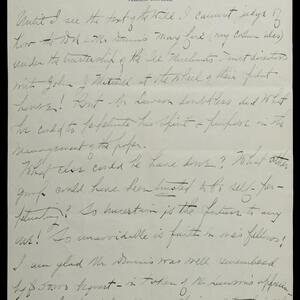 Until I see the text of the Will I cannot judge of
how to D.N. - Mr Dennis may fare (my column also)
under the trusteeship of the Ill Merchants Trust directors
with John J. Mitchell at the wheel of their pilot
house! But Mr Lawson doubtless did what
he could to perpetuate his spirit & purpose in the
management of the paper.
What else could he have done? What other
group could have been trusted to be self-per-
petuating? So uncertain is the future to any
us! So unavoidable is faith in one's fellows!
I am glad Mr Dennis was well remembered
by $ bequest - in token of Mr Lawson's